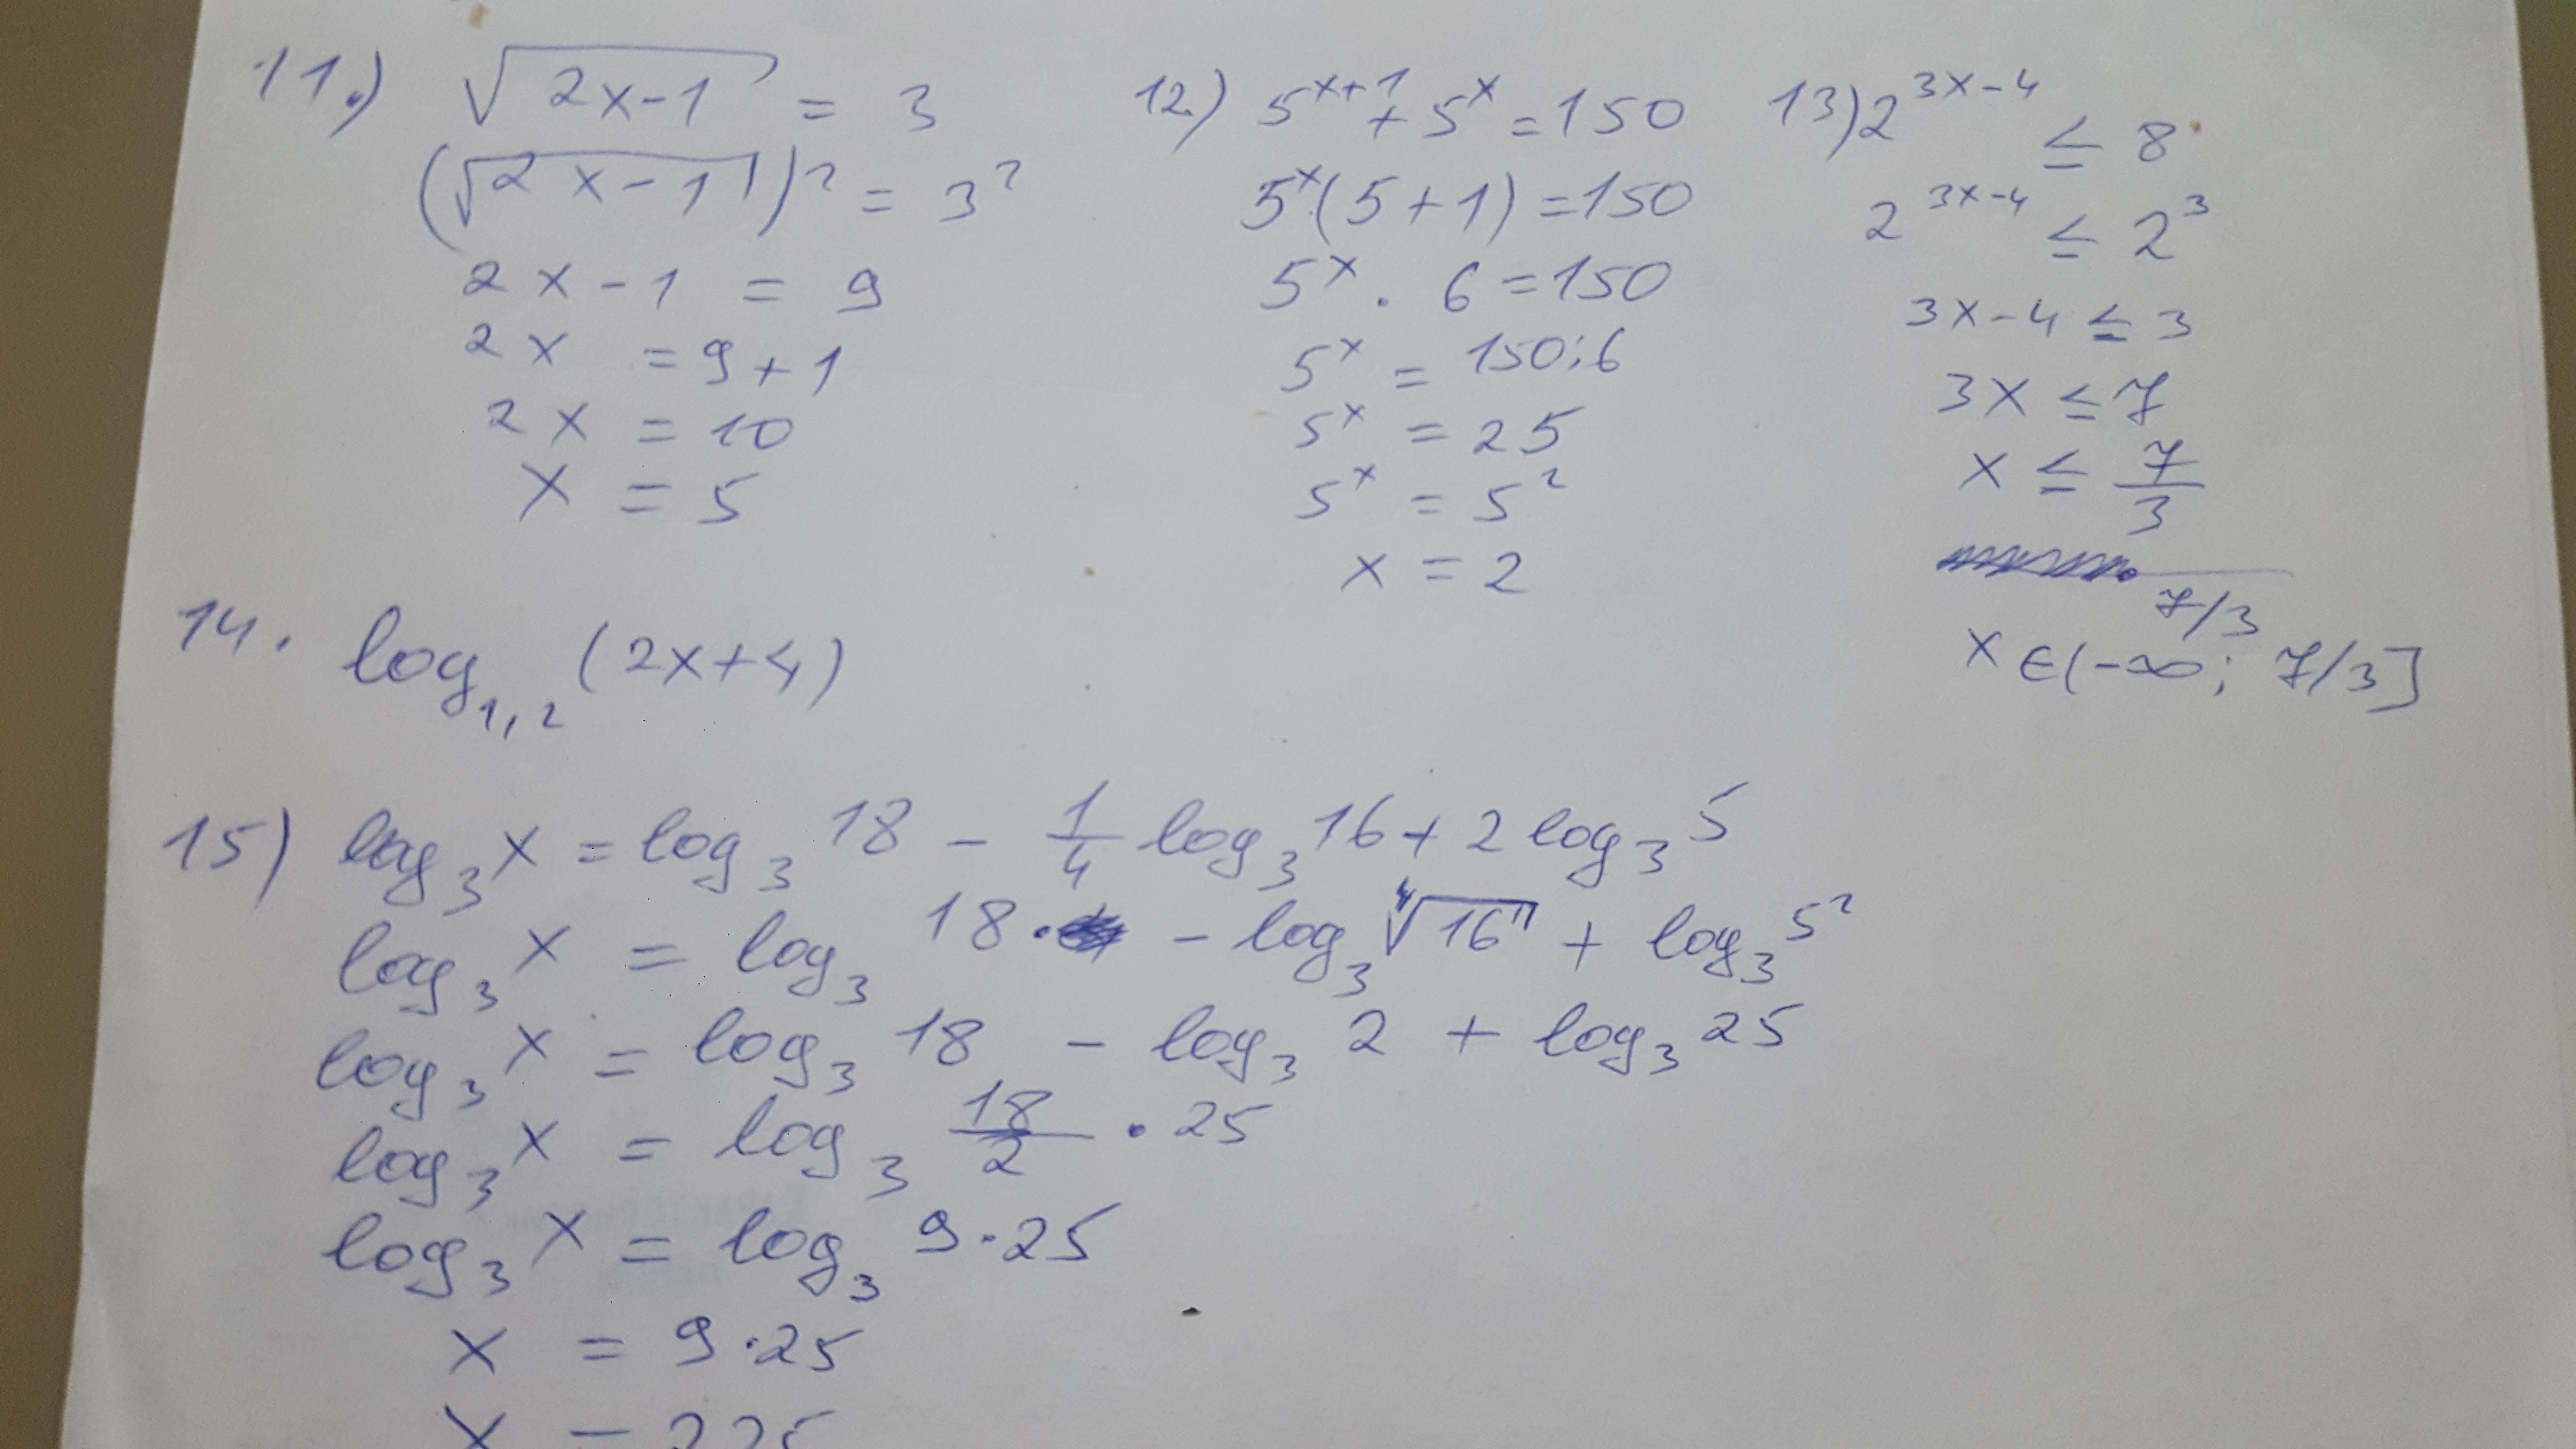 11.) √(2x-1) = 3
(√(2x-1))² = 3²
2x-1 = 9
2x = 9+1
2x = 10
x = 5
12.) 5^(x+1) + 5^x = 150
5^x(5+1) = 150
5^x · 6 = 150
5^x = 150:6
5^x = 25
5^x = 5²
x = 2
13) 2^(3x-4) ≤ 8
2^(3x-4) ≤ 2³
3x-4 ≤ 3
3x ≤ 7
x ≤ 7/3
7/3
x ∈ (-∞; 7/3]
14. log₁,₂ (2x+4)
15) log₃ x = log₃ 18 - 1/4 log₃ 16 + 2 log₃ 5
log₃ x = log₃ 18 · - log₃ ⁴√16 + log₃ 5²
log₃ x = log₃ 18 - log₃ 2 + log₃ 25
log₃ x = log₃ 18/2 · 25
log₃ x = log₃ 9·25
x = 9·25
x = 225